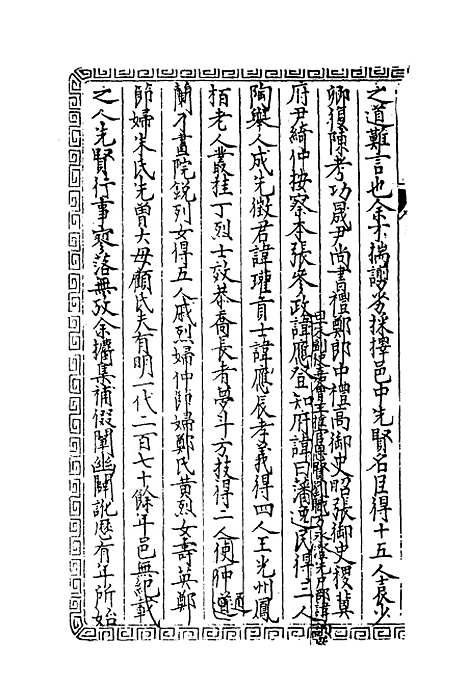 之道難言也余不揣謭劣採擇邑中先賢名臣得十五人袁少
卿復陳考功晟尹尚書禮鄭郎中禮高御史昭張御史稷冀
府尹綺仲按察本張參政諱應登知府諱曰潘逸民得三人
陶舉人成先徵君諱瓘貢士諱應辰孝義得四人王光州鳳
栢老人叢桂丁烈士效恭喬長者夢斗方技得二人使仲遒
蘭不畫院銳列女得五人戚烈婦仲節婦鄭氏黄烈女壽英鄭
節婦朱氏先曾大母顧氏夫有明一代二百七十餘年邑無紀載
之人先賢行事寥落無攷余攟集補假闡幽闢訛歷有年所始